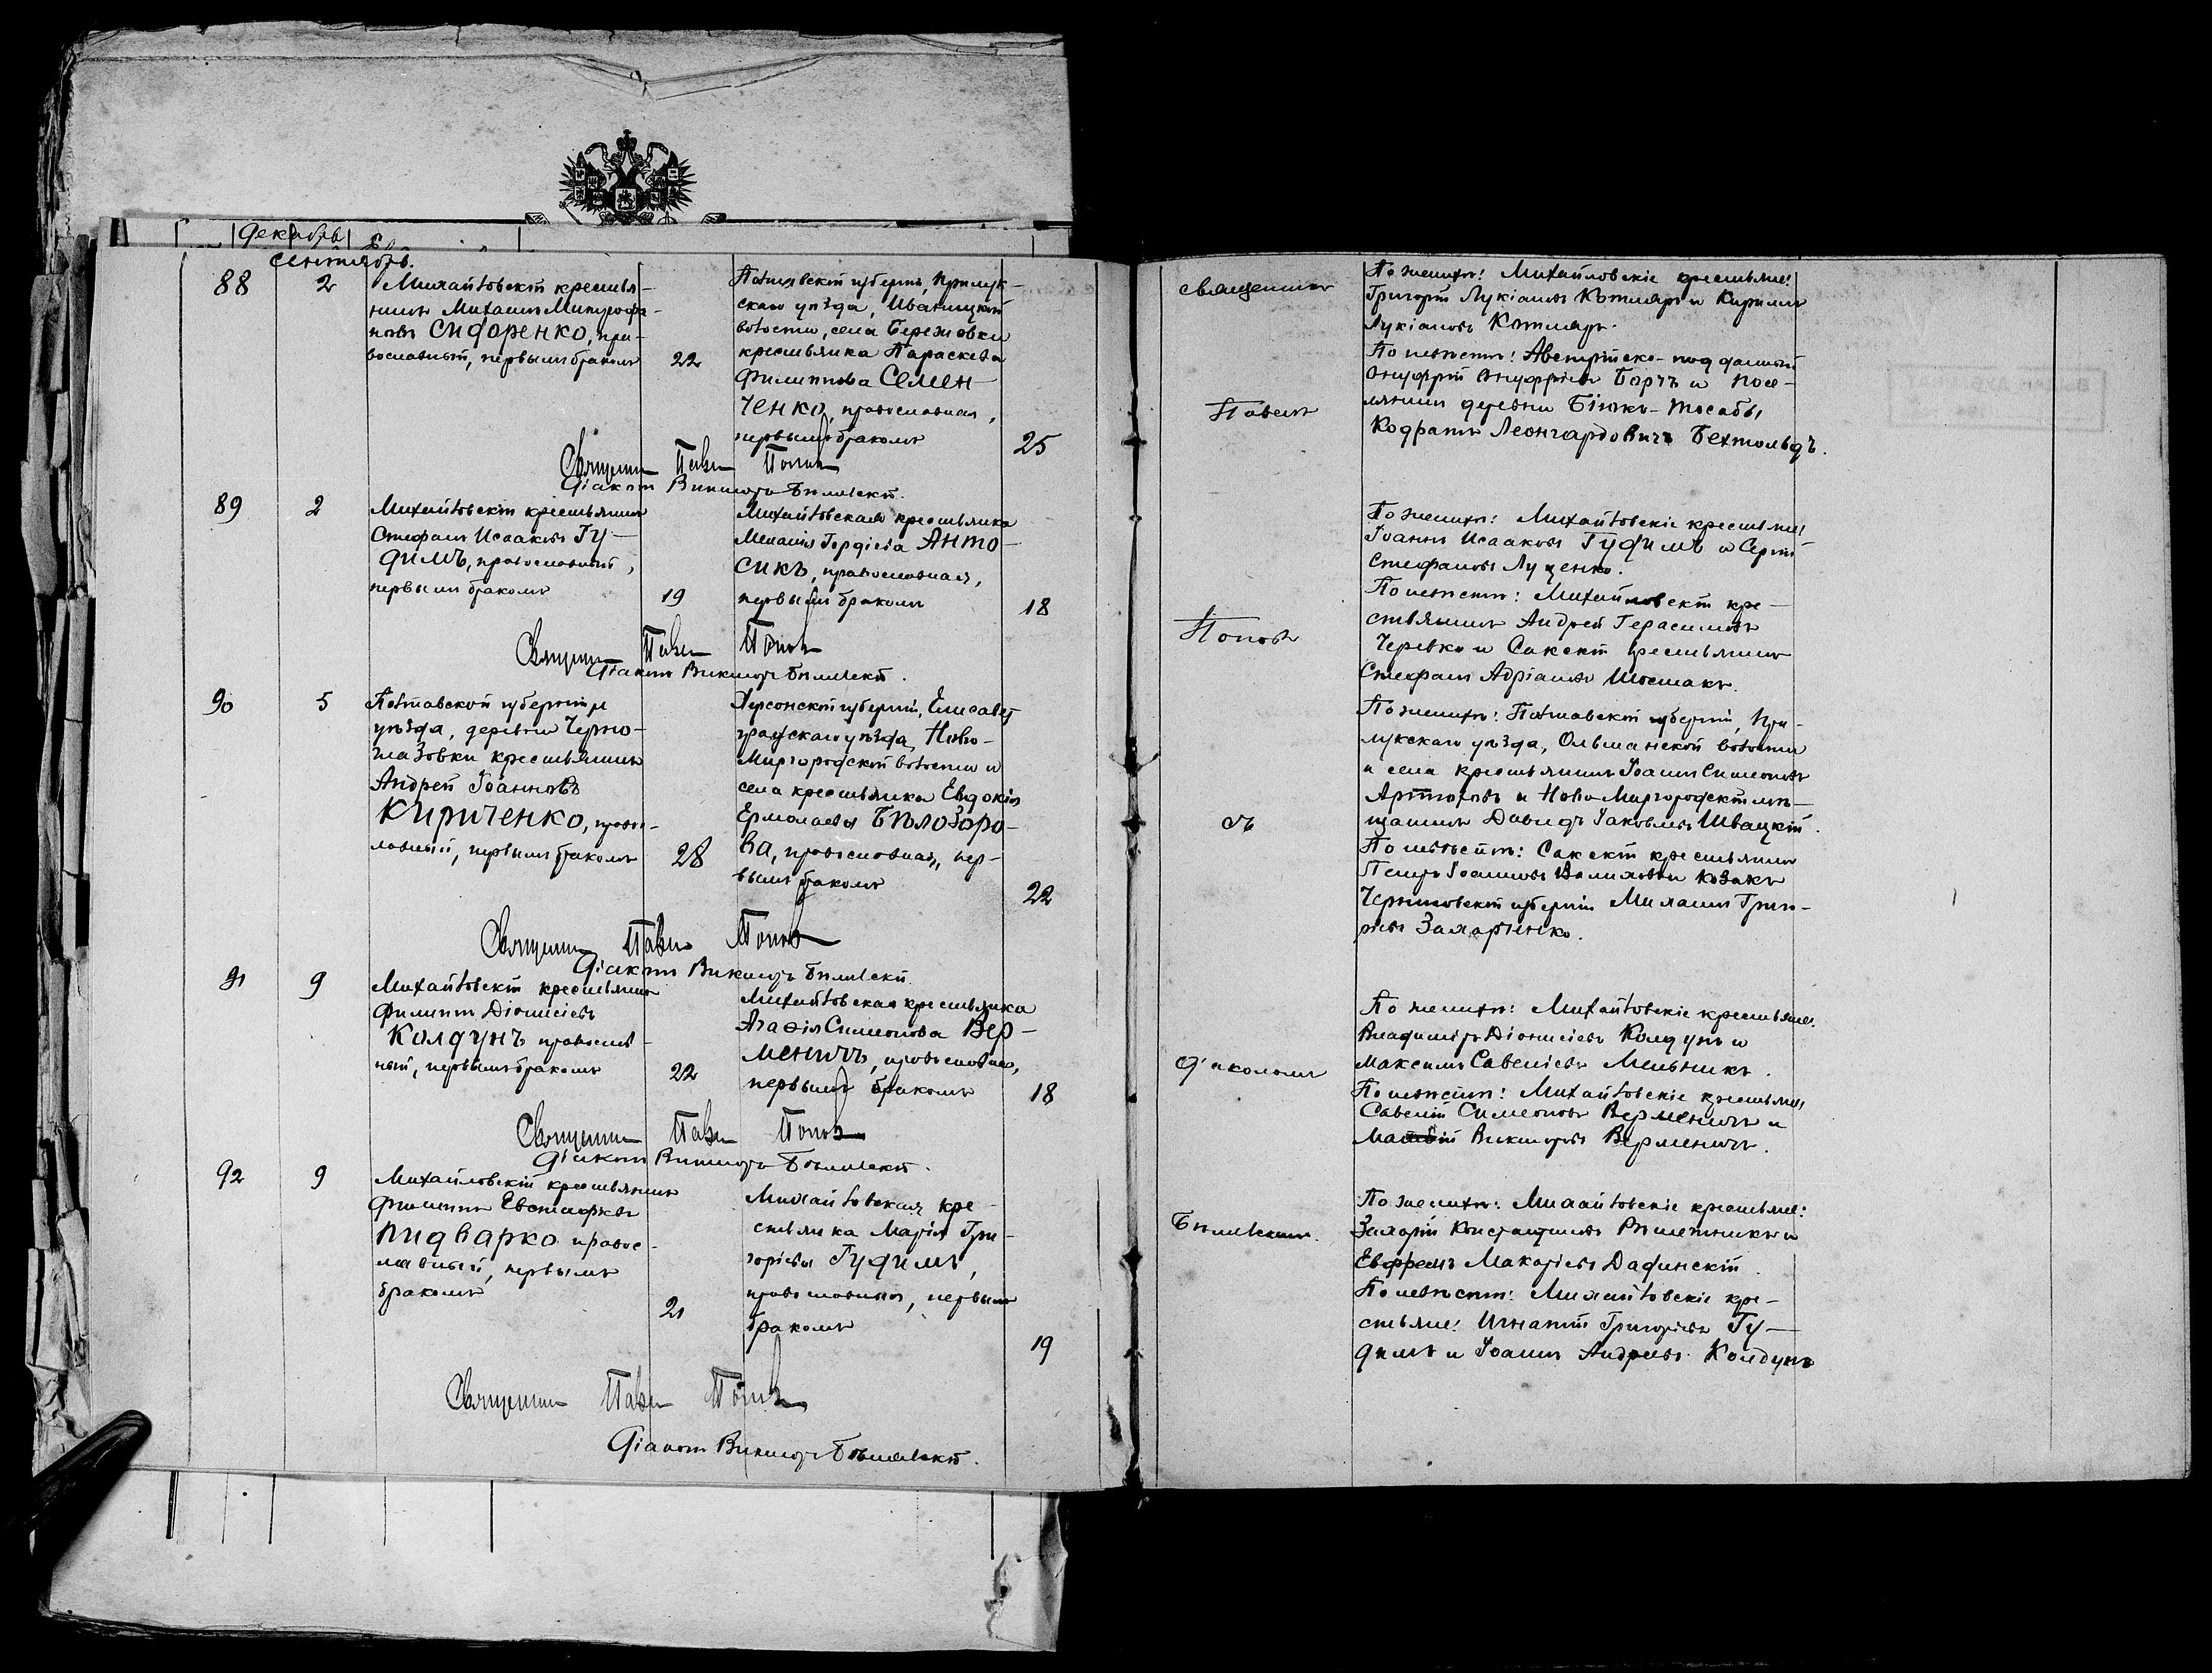 Декабрь
Сентябрь.
88
2
Михайловскій крестья-
нинъ Михаилъ Митрофа-
новъ Сидоренко, пра-
вославный, первымъ бракомъ
22
Полтавской губерніи, Прилук-
скаго уѣзда, Иваницкой
волости, села Бережовки
крестьянка Параскева
Филиппова Семен-
ченко, православная,
первымъ бракомъ
25
Священникъ Павелъ Поповъ
Діаконъ Викторъ
89
2
Михайловскій крестьянинъ
Стефанъ Исааковъ Гу-
димъ, православный,
первымъ бракомъ
19
Михайловская крестьянка
Меланія Гордіева Анто-
сикъ, православная,
первымъ бракомъ
18
Священникъ Павелъ Поповъ
Діаконъ Викторъ
90
5
Полтавской губерніи и
уѣзда, деревни Черно-
глазовки крестьянинъ
Андрей Іоанновъ
Кириченко, правос-
лавный, первымъ бракомъ
28
Херсонской губерніи, Елисавет
градскаго уѣзда, Ново-
Миргородской волости и
села крестьянка Евдокія
Ермолаева Бѣлозоро-
ва, православная, пер-
вымъ бракомъ
22
Священникъ Павелъ Поповъ
Діаконъ Викторъ
91
9
Михайловскій крестьянинъ
Филиппъ Діонисіевъ
Колдунъ православ-
ный, первымъ бракомъ
22
Михайловская крестьянка
Агаѳія Симеонова Вер-
меничъ, православная,
первымъ бракомъ
18
Священникъ Павелъ Поповъ
Діаконъ Викторъ
92
9
Михайловскій крестьянинъ
Филиппъ Евстафіевъ
Пидварко правос-
лавный, первымъ
бракомъ
21
Михайловская кре-
стьянка Марія Гри-
горіева Гудимъ,
православная, первымъ
бракомъ
19
Священникъ Павелъ Поповъ
Діаконъ Викторъ
Священникъ
Павелъ
Поповъ
съ
діакономъ
По женихѣ: Михайловскіе крестьяне:
Григорій Лукіановъ Котляръ и Кириллъ
Лукіановъ Котляръ.
По невѣстѣ: Австрійско-подданный
Онуфрій Онуфріевъ Борчъ и посе-
лянинъ деревни Біюкъ-
Кодратъ Леонгардовичъ Бехтольдъ.
По женихѣ: Михайловскіе крестьяне
Іоаннъ Исааковъ Гудимъ и Сергій
Стефановъ Луценко.
По невѣстѣ: Михайловскій кре-
стьянинъ Андрей Герасимовъ
Черевко и Сакскій крестьянинъ
Стефанъ Адріановъ Шостакъ.
По женихѣ: Полтавской губерніи, При-
лукскаго уѣзда, Ольшанской волости
и села крестьянинъ Іоаннъ Симеоновъ
и Ново-Миргородскій мѣ-
щанинъ Давидъ Іаковлевъ Швацкій.
По невѣстѣ: Сакскій крестьянинъ
Петръ Іоанновъ и козакъ
Черниговской губерніи Михаилъ Григо-
ріевъ Захарченко.
По женихѣ: Михайловскіе крестьяне:
Владиміръ Діонисіевъ Колдунъ и
Максимъ Савеліевъ Мельникъ.
По невѣстѣ: Михайловскіе крестьяне
Савелій Симеоновъ Верменичъ и
Матвій Викторовъ Верменичъ.
По женихѣ: Михайловскіе крестьяне:
Захарій Константиновъ Рѣшетникъ и
Евфремъ Макаріевъ Дафинскій.
По невѣстѣ: Михайловскіе кре-
стьяне: Игнатій Григорьевъ Гу-
димъ и Іоаннъ Андреевъ Колдунъ